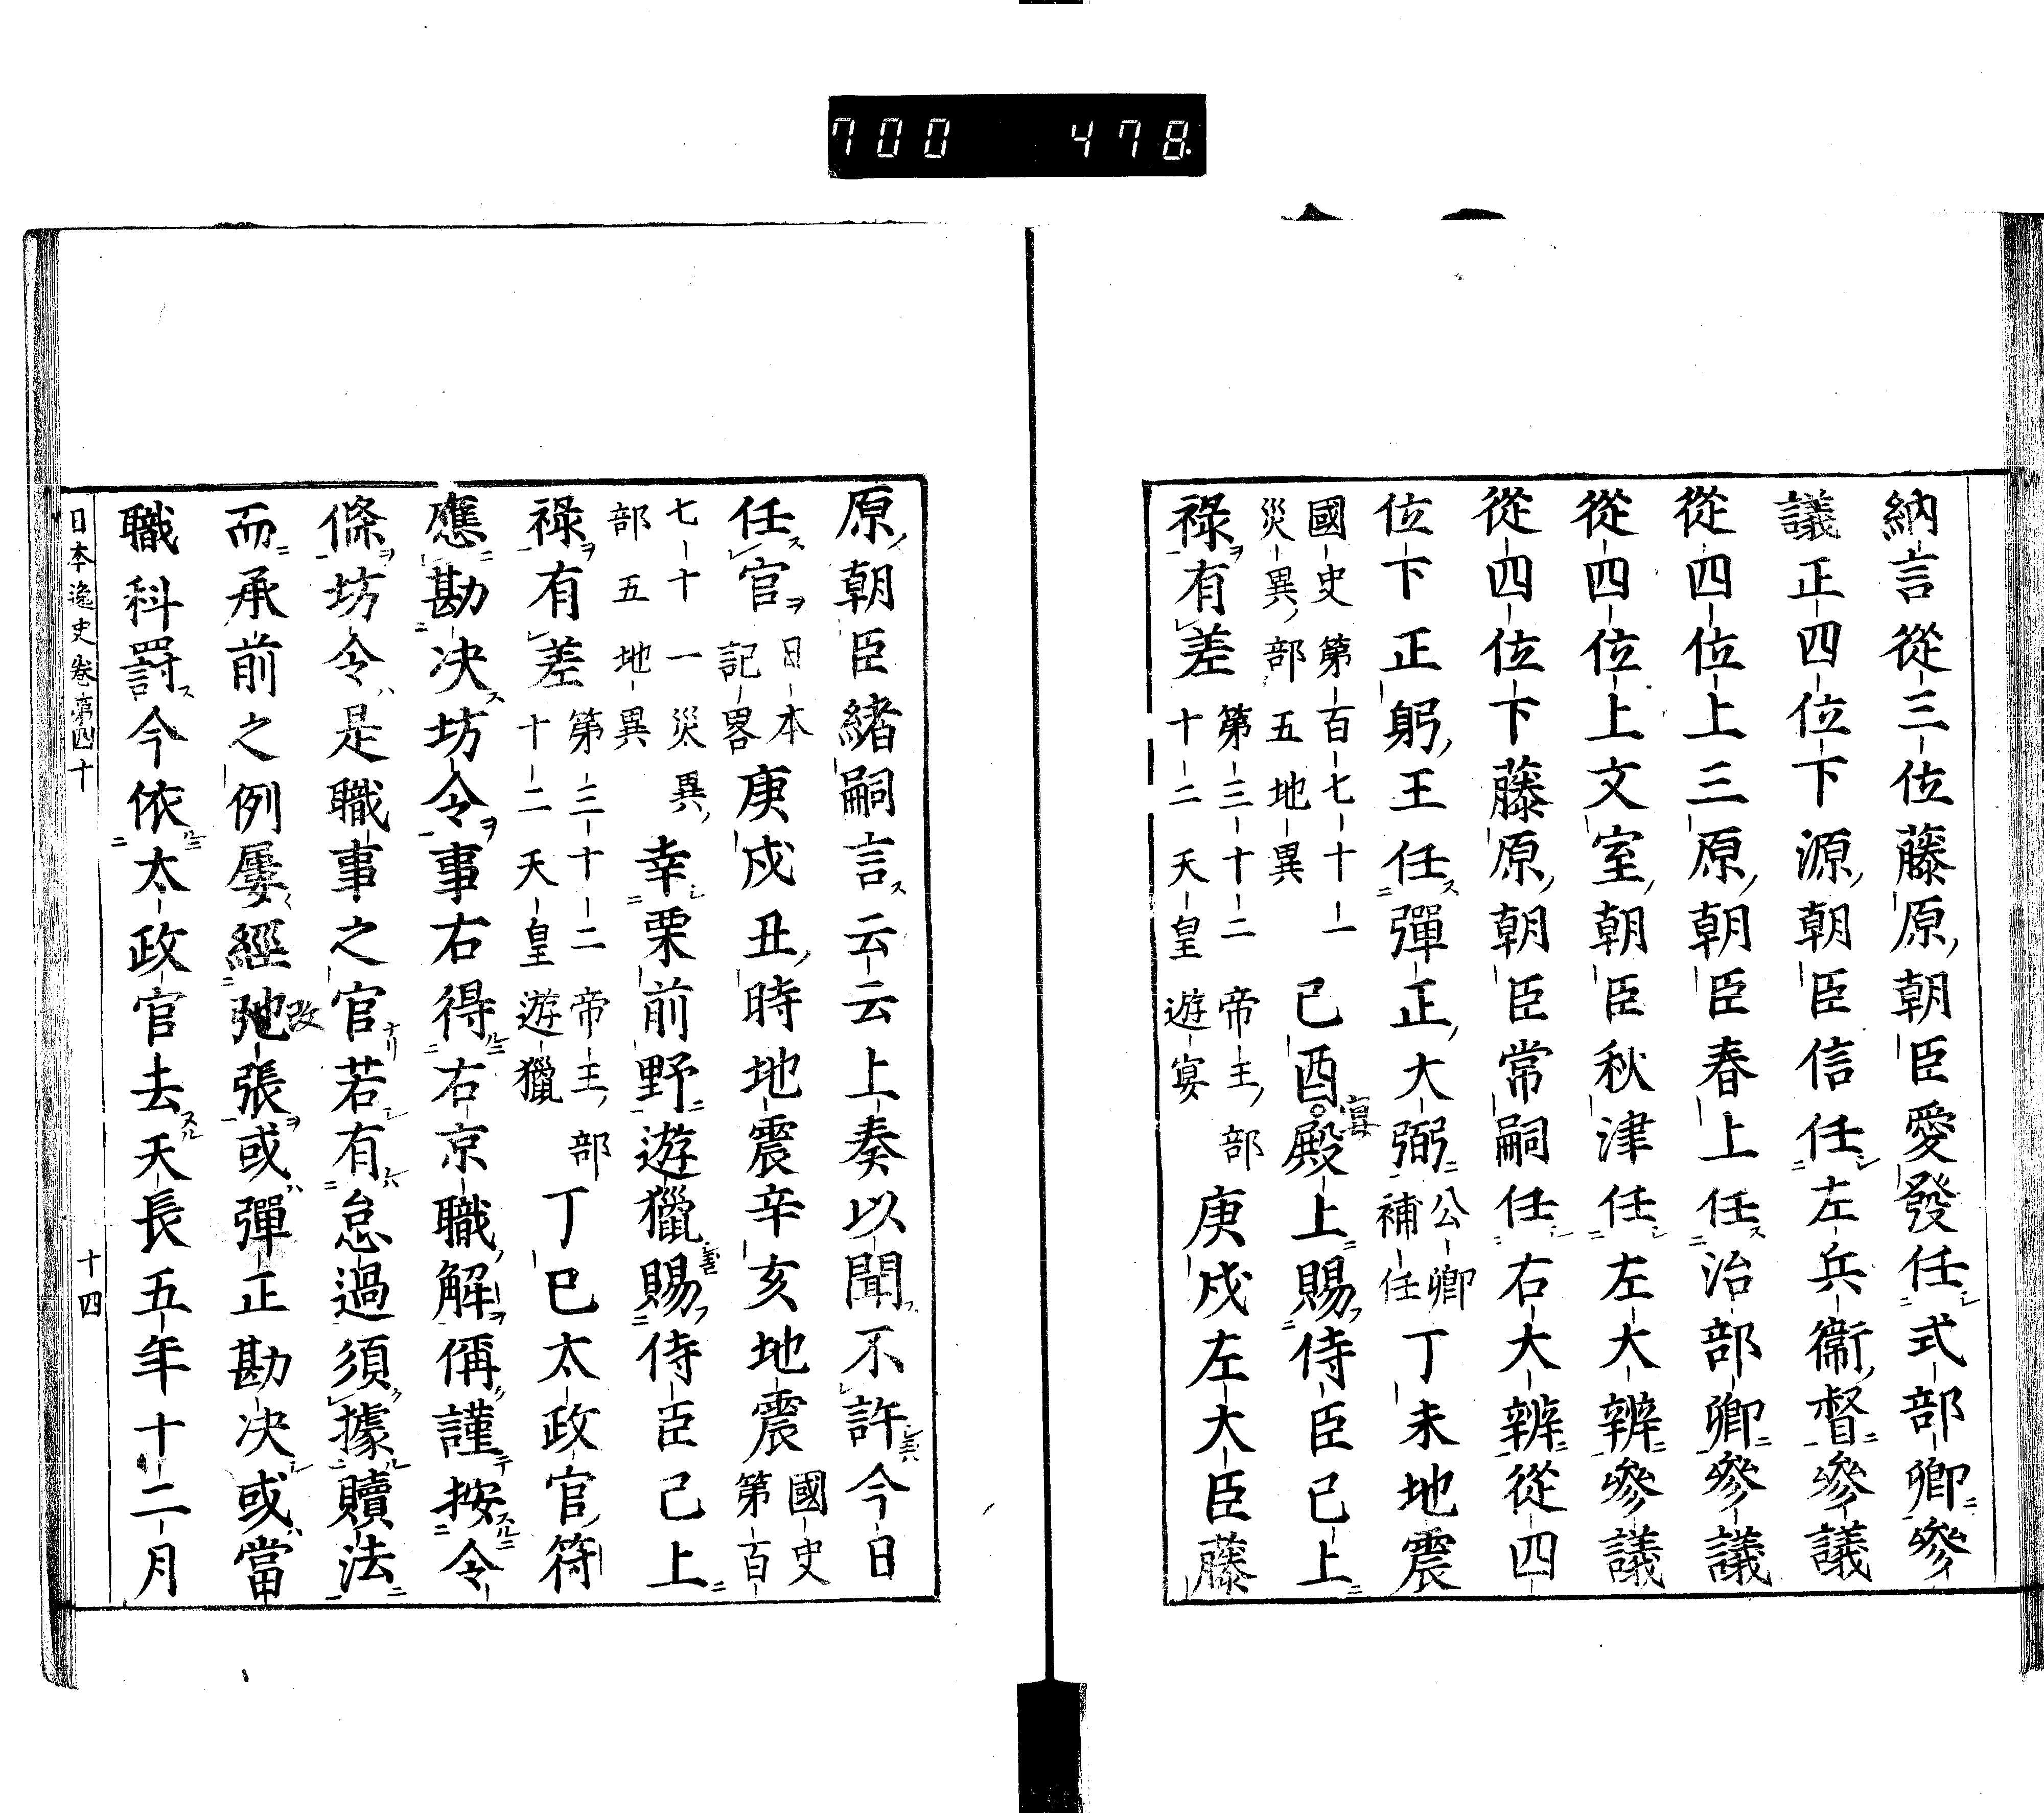 700 478
納言從三位藤原朝臣愛發任式部卿參
議正四位下源朝臣信任左兵衞督參議
從四位上三原朝臣春上任治部卿參議
從四位上文室朝臣秋津任左大辨參議
從四位下藤原朝臣常嗣任右大辨從四
位下正躬王任彈正大弼公卿補任丁未地震
國史第百七十一災異部五地異己酉殿上賜侍臣已上
宴
祿有差第三十二帝王部十二天皇遊宴庚戌左大臣藤
原朝臣緒嗣言云云上奏以聞不許今日
任官日本記畧庚戌丑時地震辛亥地震國史第百
七十一災異部五地異幸栗前野遊獵賜侍臣已上
祿有差第三十二帝王部十二天皇遊獵丁巳太政官符
應勘决坊令事右得右京職解偁謹按令
條坊令是職事之官若有怠過須據贖法
而承前之例屢經弛張或彈正勘决或當
改
職科罸今依太政官去天長五年十二月
日本逸史卷第四十 十四